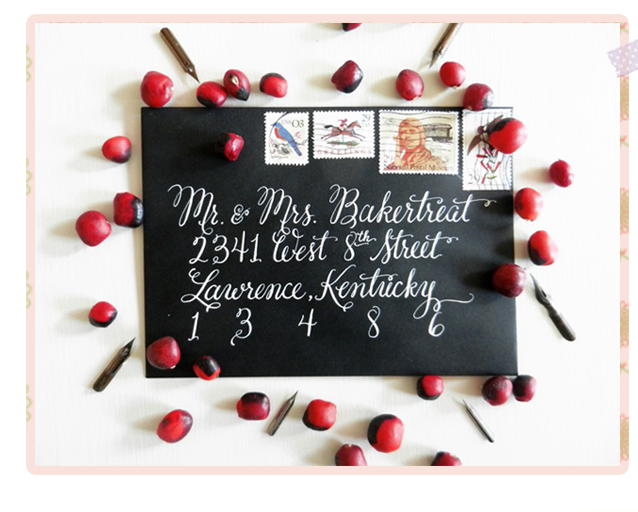 03
29
Mr. & Mrs. Bakertreat
2341 West 8th Street
Lawrence, Kentucky
1 3 4 8 6